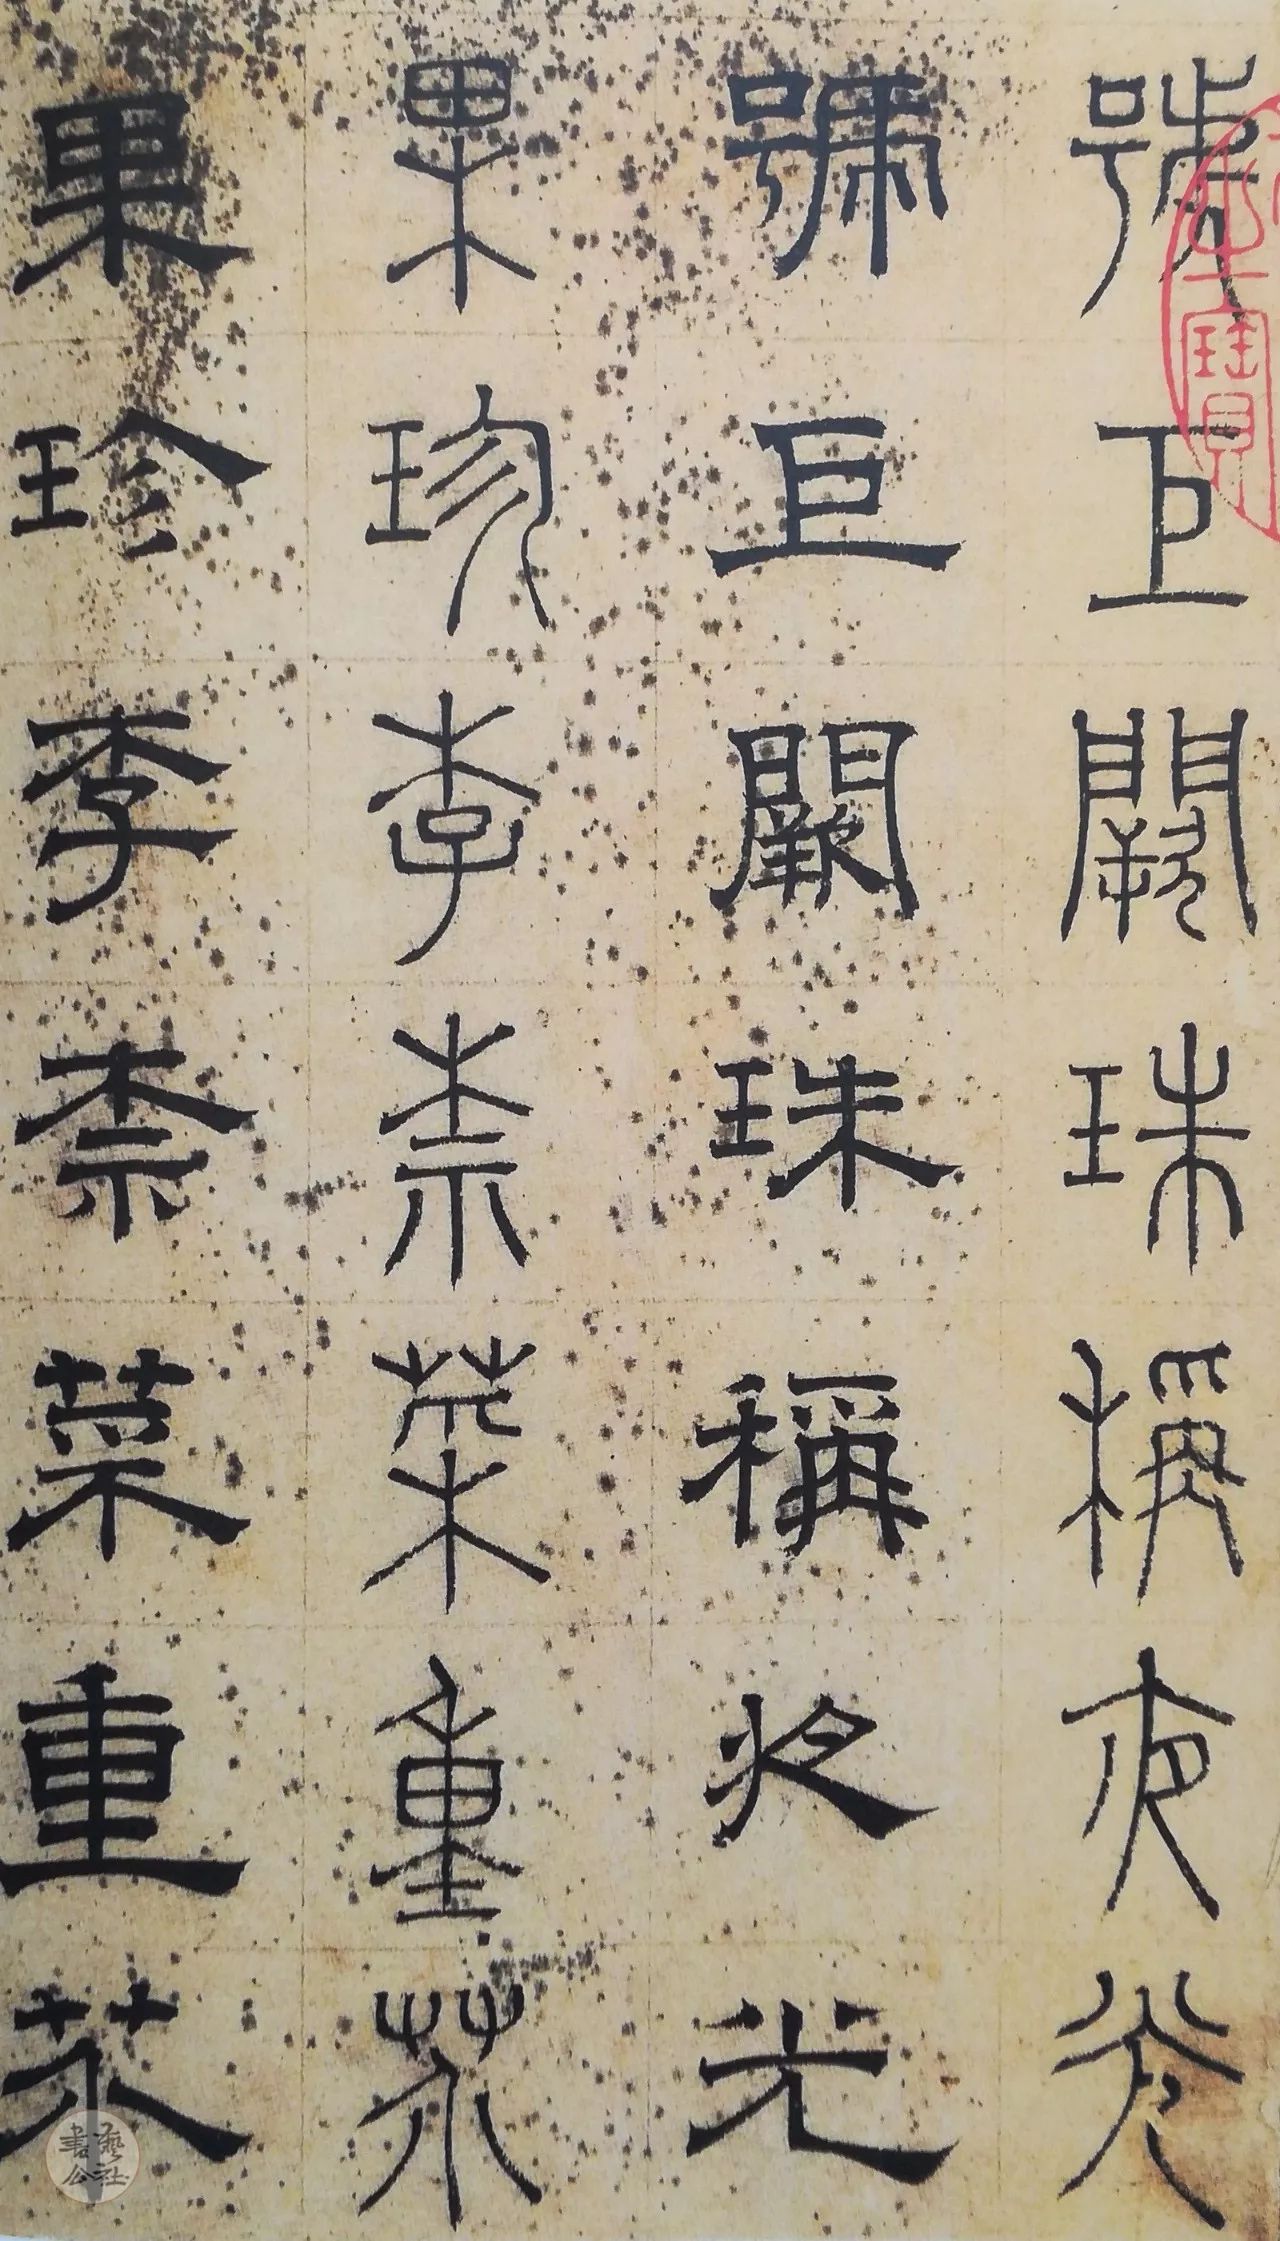 號巨闕珠稱夜光
號巨闕珠稱夜光
果珍李柰菜重芥
果珍李柰菜重芥
書藝公社